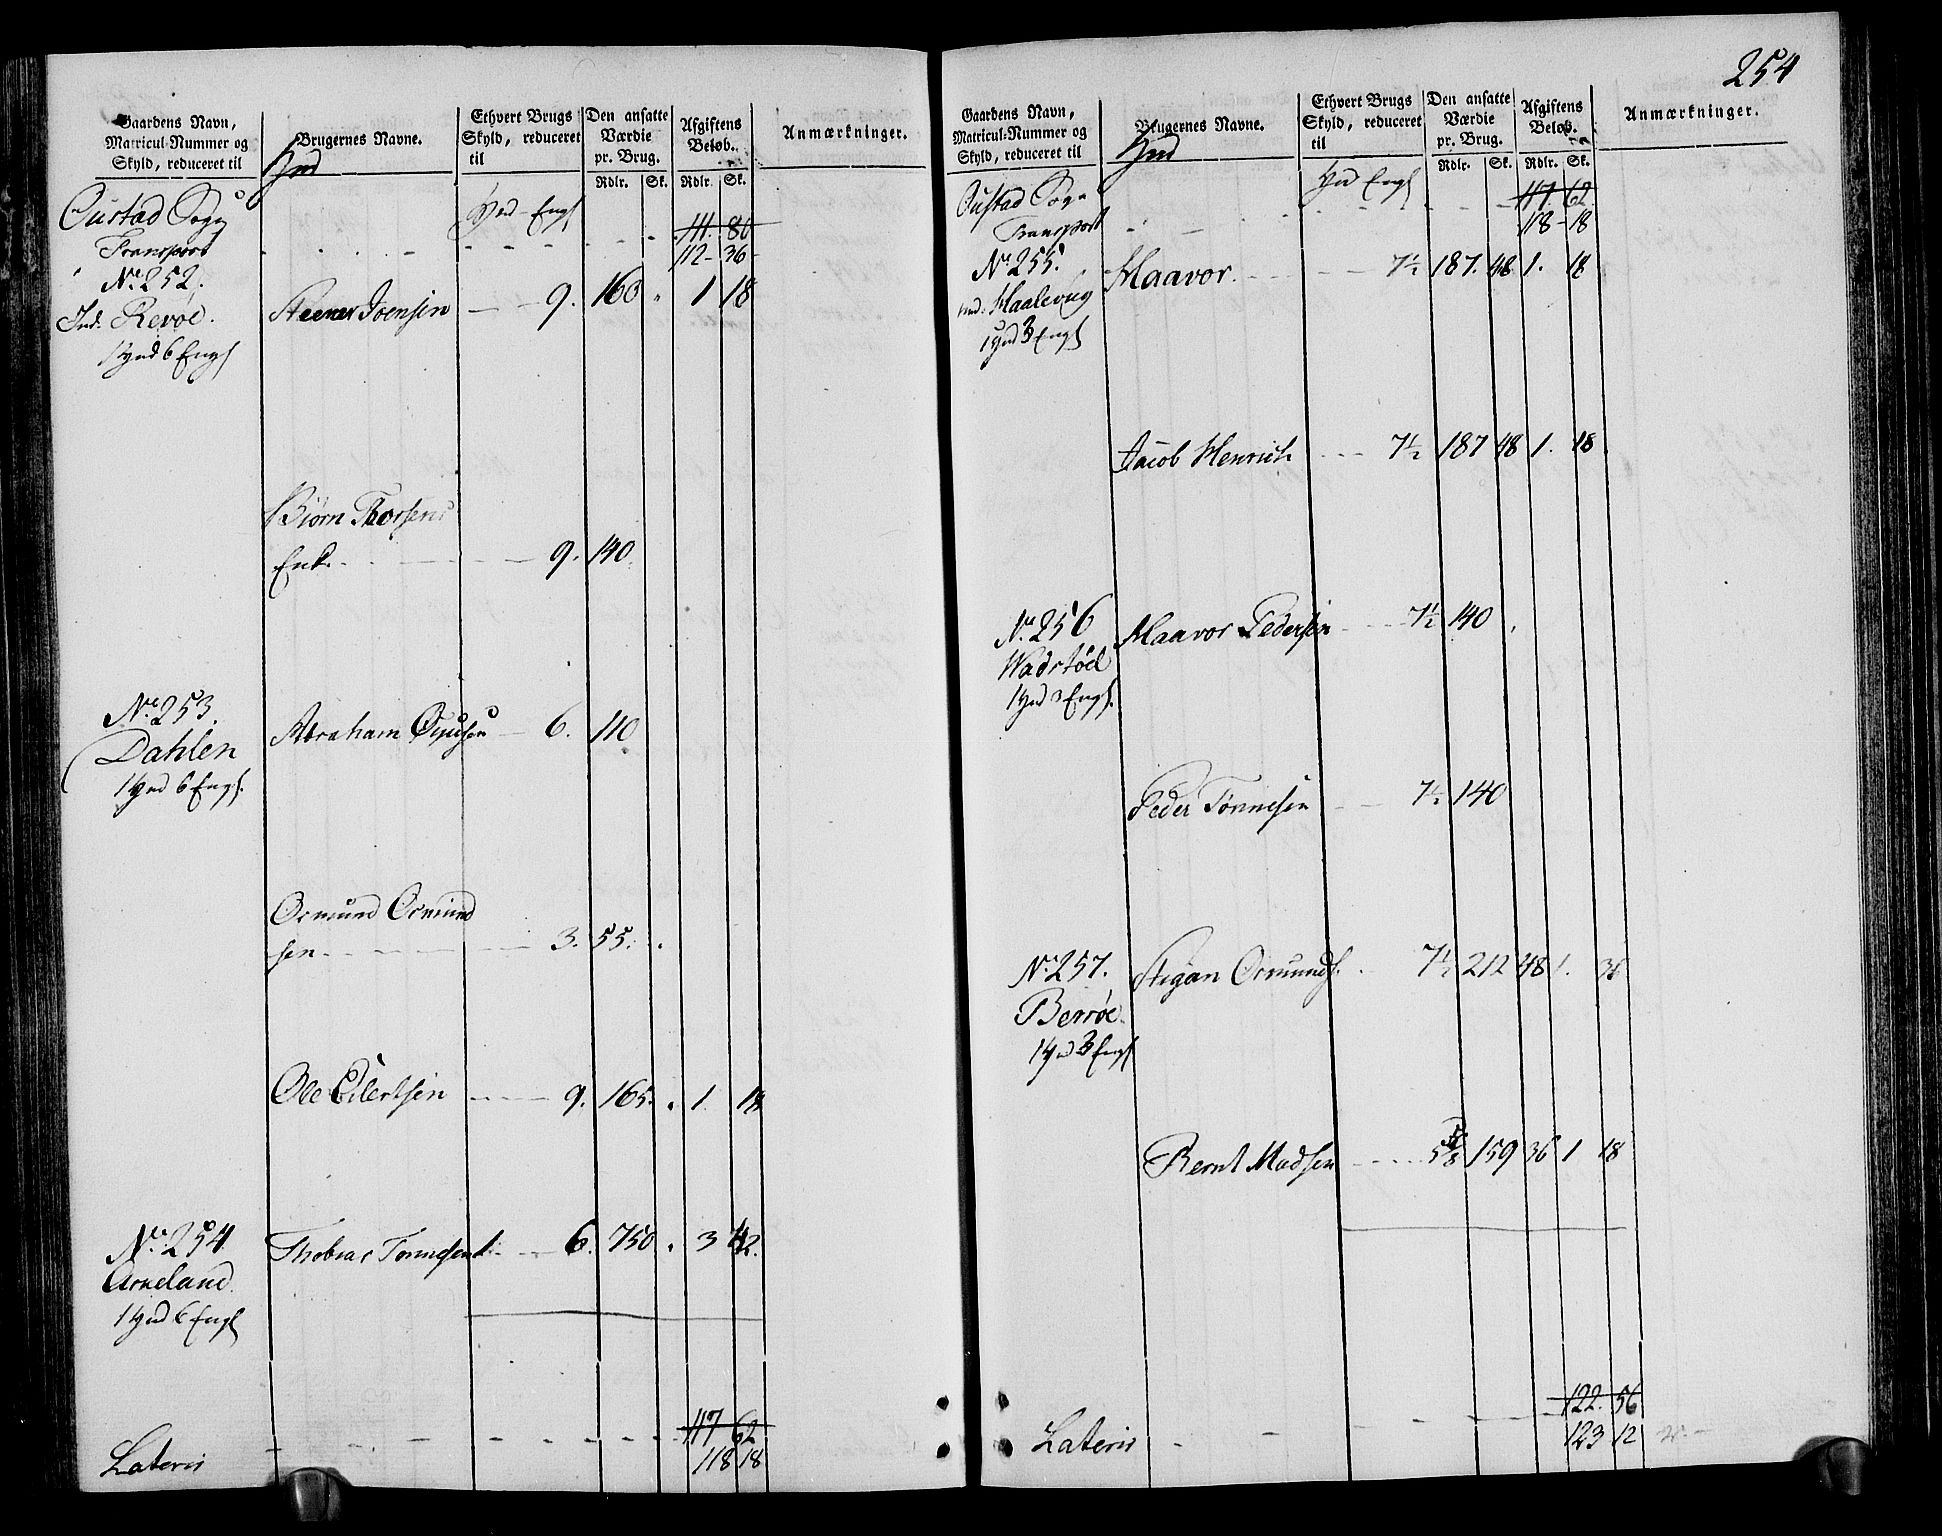 Gaardens Navn,
Matricul-Nummer og
Skyld, reduceret til
Brugernes Navne.
Ethvert Brugs
Skyld, reduceret
til
Den ansatte
Værdie
pr. Brug.
Rdlr. Sk.
Afgiftens
Beløb.
Rdlr. Sk.
Anmærkninger.
Oustad Sogn
Transport
111. 80
112 - 36
No. 252.
Ind. Revøe.
1 Hud 6 Eng
Steener Joensen 9. 160 1 18
Biørn Thorsens
Enk. 9. 140
No. 253.
Dahlen
1 Hud 6 Eng.
Abraham 6. 110
Osmund Osmund
sen 3. 55.
Ole Eilertsen 9. 165. 1. 18
No. 254
Arneland.
1 Hud 6 Eng
Thobias Tonnesen 6. 750 3 42.
117 62
Lateris 118 18
254
Gaardens Navn,
Matricul-Nummer og
Skyld, reduceret til
Brugernes Navne.
Ethvert Brugs
Skyld, reduceret
til
Den ansatte
Værdie
pr. Brug.
Rdlr. Sk.
Afgiftens
Beløb.
Rdlr. Sk.
Anmærkninger.
Hud Eng
Oustad Sogn
Transport
117. 62
118 - 18
No. 255.
ind. Haalevug
1 Hud 3 Eng
Haavor. 7½ 187. 48 1. 18
Jacob Henrich 7½ 187 48 1. 18
No. 256
Wadstøel
1 Hud 3 Eng.
Haavor Pedersen 7½ 140
Peder Tønnesen 7½ 140
No. 257.
Berrøe
1 Hud 3 Eng
Stigan Osmunds. 7½ 212 48 1. 36
Bernt Madsen 5⅝ 159 36 1 18
122. 56
Lateris 123 12